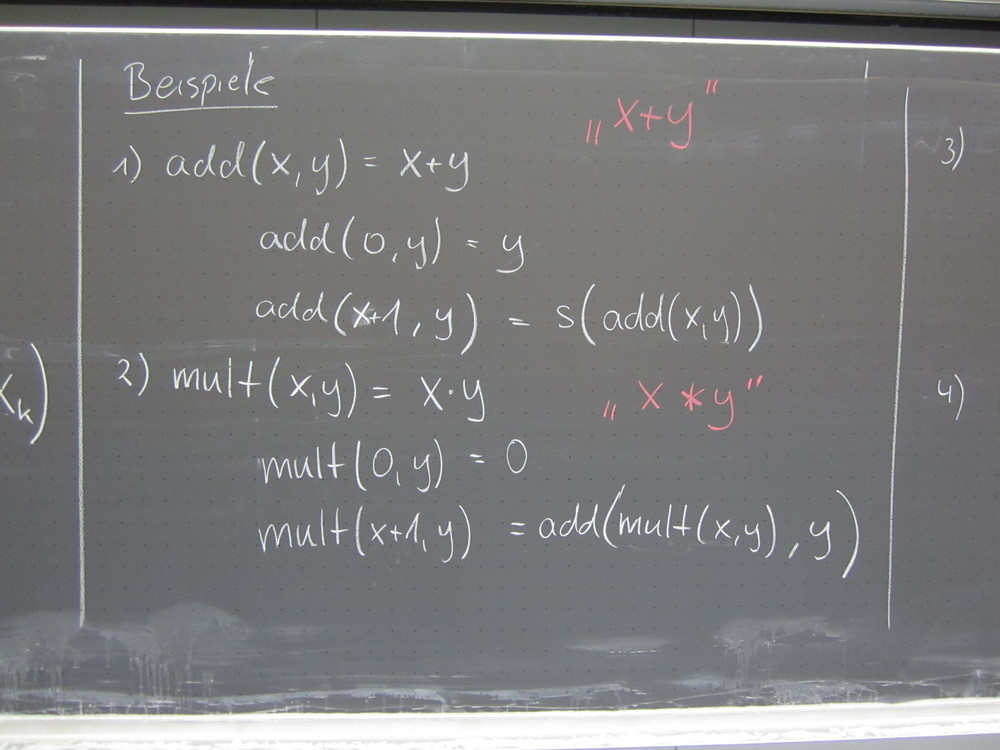 Beispiele
„x+y"
1) add(x,y) = x+y
add(0,y) = y
add(x+1,y) = s(add(x,y))
2) mult(x,y) = x·y „x * y"
mult(0,y) = 0
mult(x+1,y) = add(mult(x,y),y)
x_k)
3)
4)